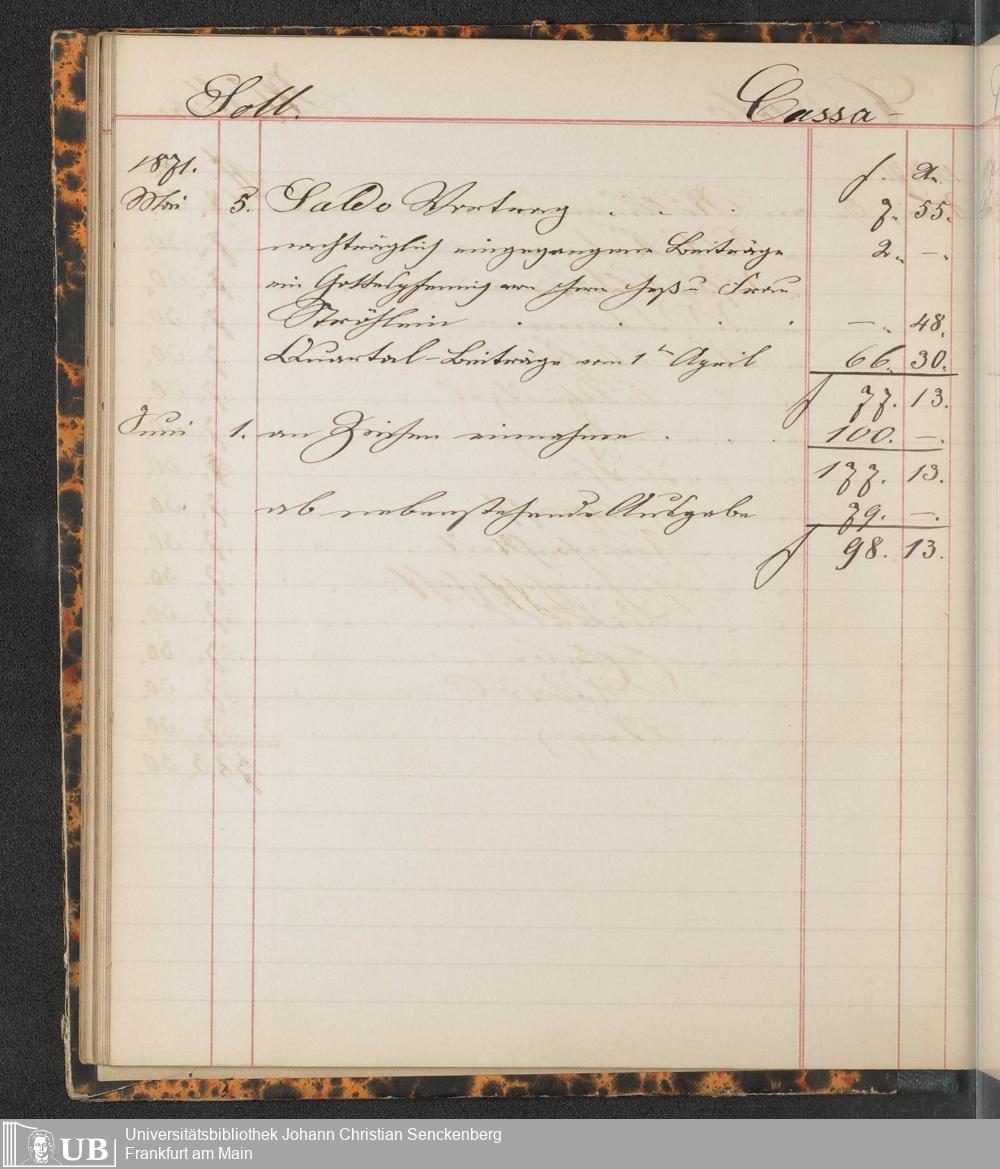 Soll. Cassa
1871. f. x.
Mai 5. Saldo Vortrag . . . 7. 55.
nachträglich eingegangene Beiträge 2. –.
ein Gottespfennig von Herrn Heß u Frau
Ströhlein . . . . –. 48.
Quartal-Beiträge vom 1ten April 66. 30.
f 77. 13.
Juni 1. an Zinsen einnahme . . . 100. –.
177. 13.
ab nebenstehende Ausgabe 79. –.
f 98. 13.
UB Universitätsbibliothek Johann Christian Senckenberg
Frankfurt am Main